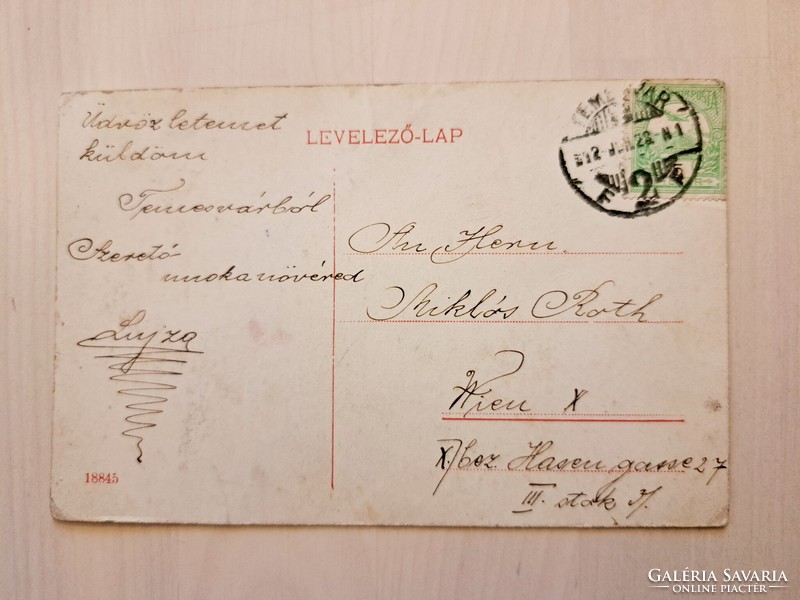 Üdvözletemet
küldöm
Temesvárból
Szerető
unokanővéred
Lujza
18845
LEVELEZŐ-LAP
TEMESVÁR
912 JUN 28 N1
F 2 F
An Herrn
Miklós Roth
Wien X
X/bez. Hasengasse 27
III. stok
GALÉRIA SAVARIA
ONLINE PIACTÉR